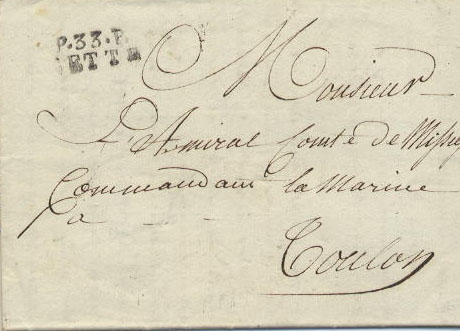 P.33.P.
CETTE
Monsieur
L'Amiral Comte de Missie
Commandant la Marine
a
Toulon